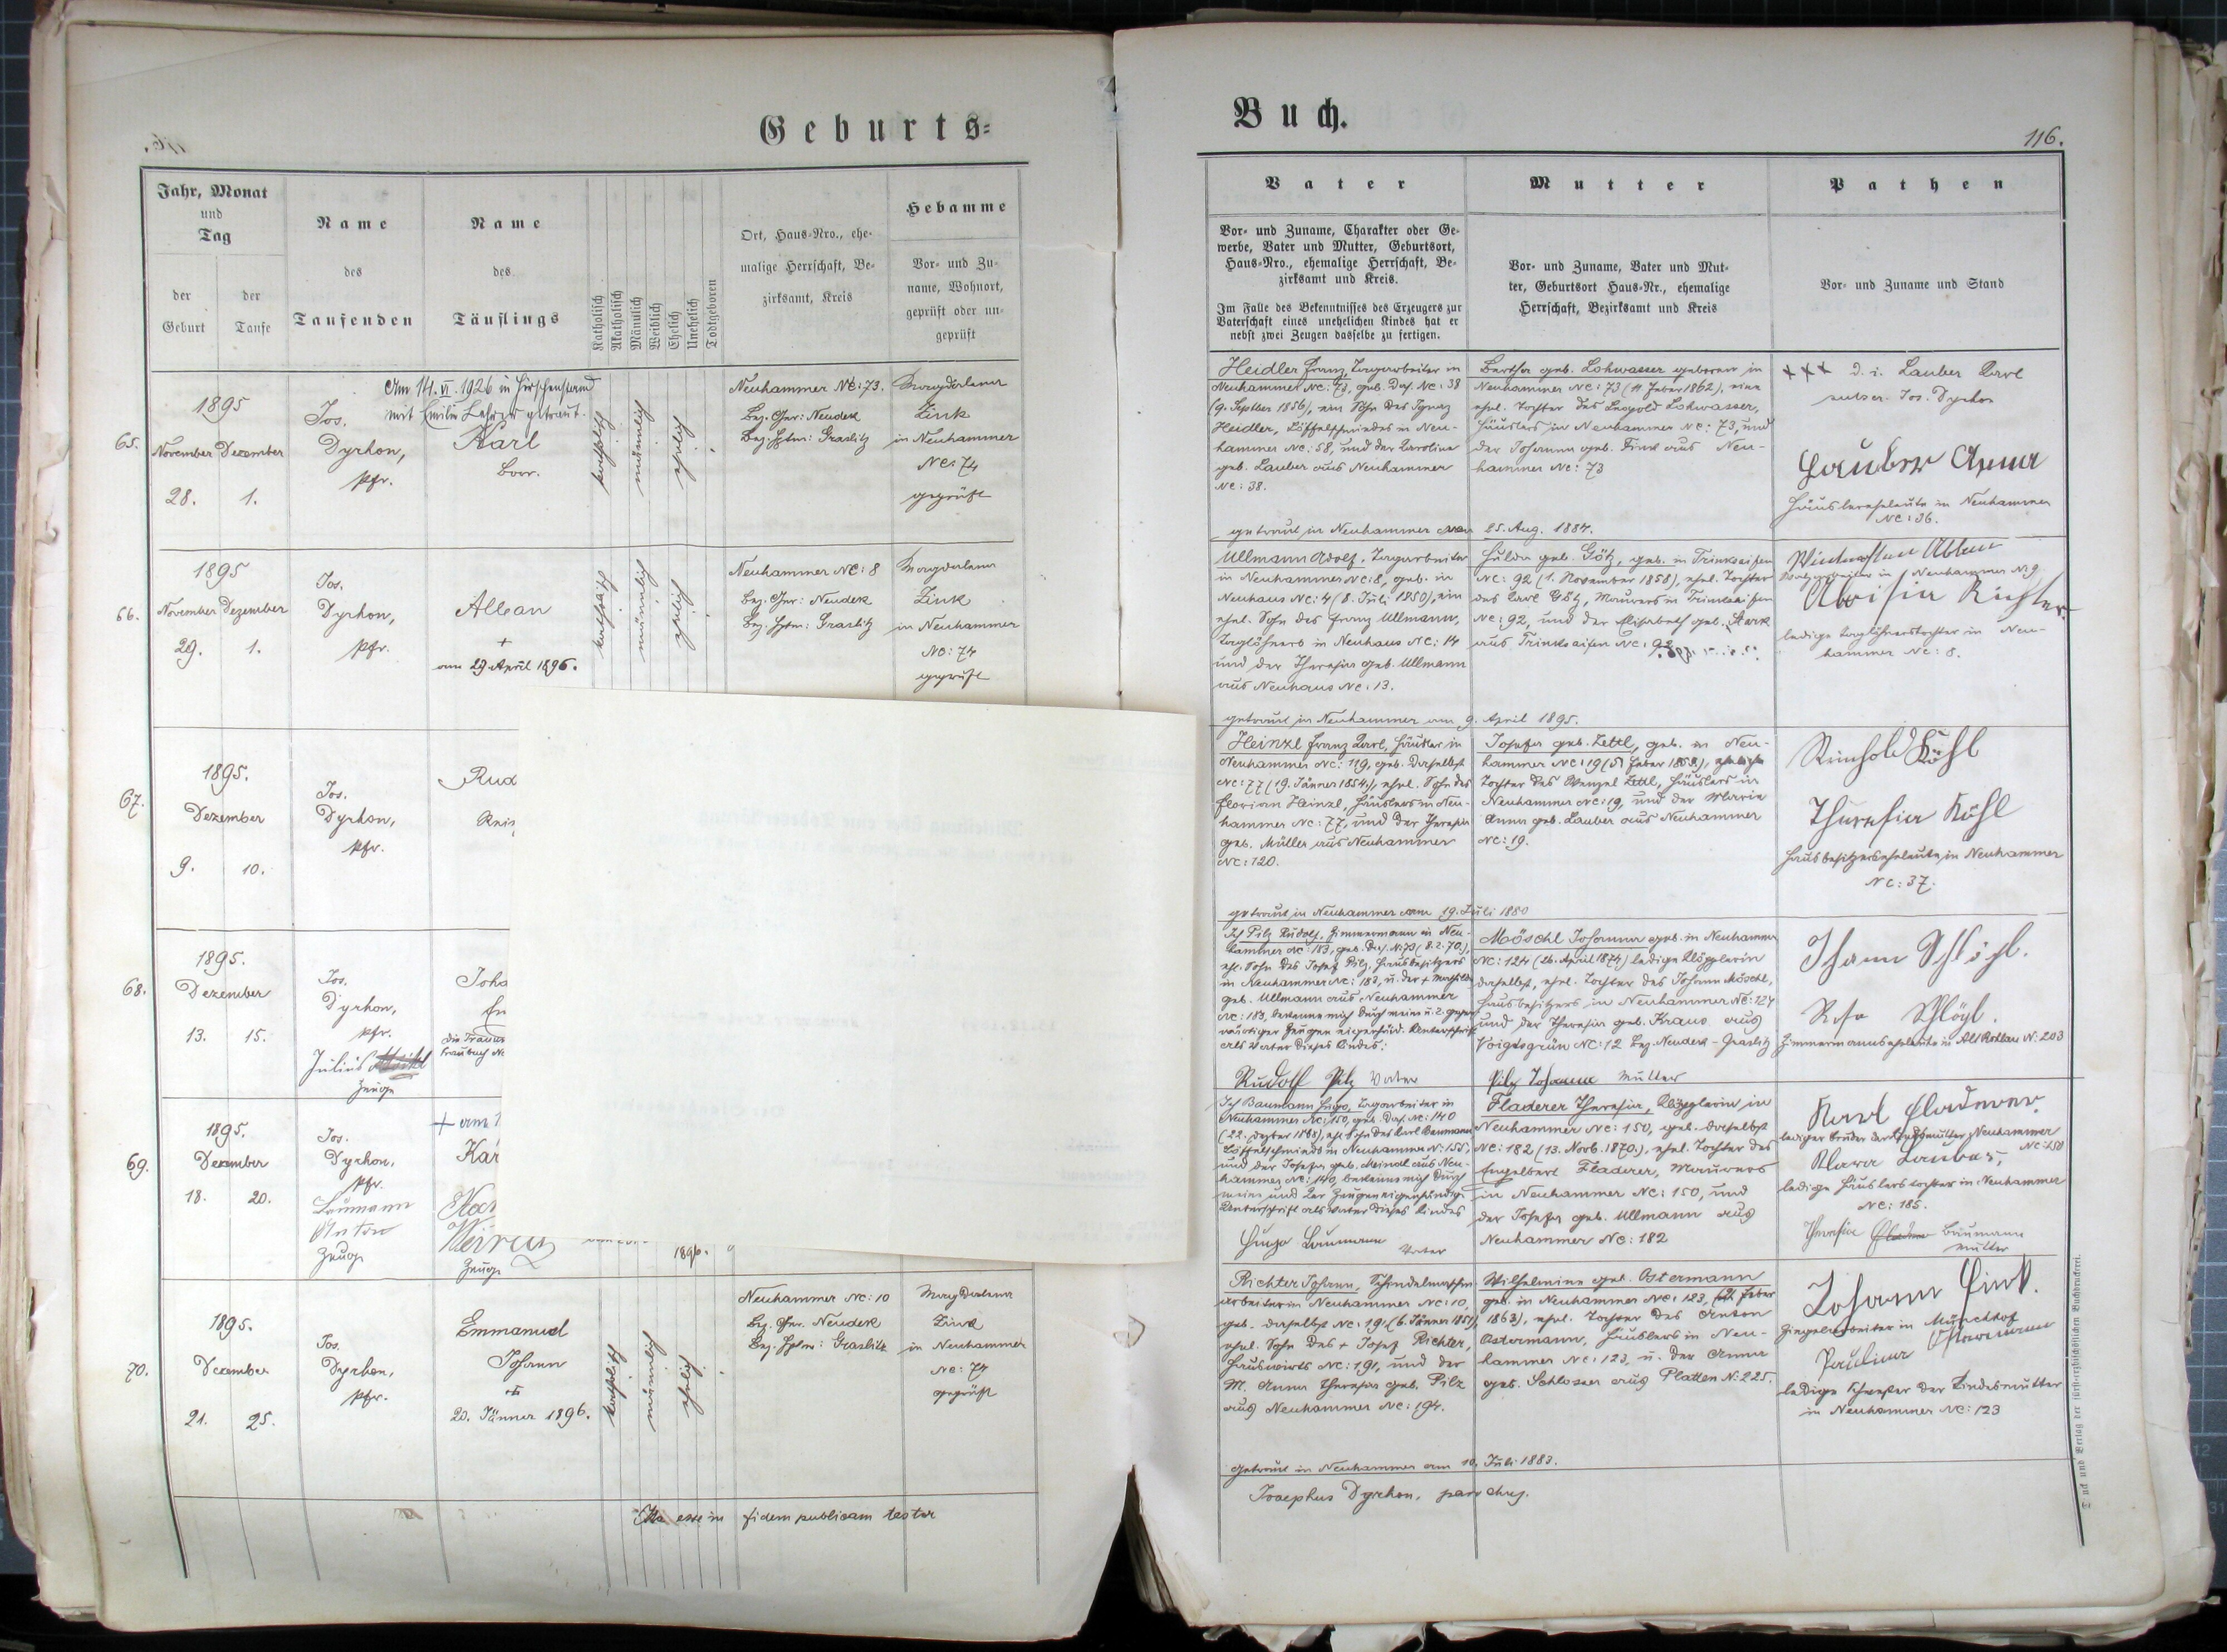 Geburts=
Buch.
116.
Jahr, Monat
und
Tag
der
Geburt
der
Taufe
Name
des
Taufenden
Name
des
Täuflings
Katholisch
Akatholisch
Männlich
Weiblich
Ehelich
Unehelich
Todtgeboren
Ort, Haus-Nro., ehe-
malige Herrschaft, Be-
zirksamt, Kreis
Hebamme
Vor- und Zu-
name, Wohnort,
geprüft oder un-
geprüft
Vater
Vor- und Zuname, Charakter oder Ge-
werbe, Vater und Mutter, Geburtsort,
Haus-Nro., ehemalige Herrschaft, Be-
zirksamt und Kreis.
Im Falle des Bekenntnisses des Erzeugers zur
Vaterschaft eines unehelichen Kindes hat er
nebst zwei Zeugen dasselbe zu fertigen.
Mutter
Vor- und Zuname, Vater und Mut-
ter, Geburtsort Haus-Nr., ehemalige
Herrschaft, Bezirksamt und Kreis
Pathen
Vor- und Zuname und Stand
65.
1895
November Dezember
28. 1.
Jos.
Dyrhon,
Pfr.
Am 14. VI. 1926 in Hirschenstand
mit Emilie Lehrer getraut.
Karl
katholisch
männlich
ehelich
Neuhammer NC: 73.
Bez. Ger: Neudek
Bez. Hptm: Graslitz
Magdalena
Zink
in Neuhammer
NC: 74
geprüft
Heidler Franz, Tagarbeiter in
Neuhammer NC: 73, geb. das. NC: 38
(9. Septber 1856), ein Sohn des Ignaz
Heidler, Löffelschmiedes in Neu-
hammer NC: 58, und der Karoline
geb. Lauber aus Neuhammer
NC: 38.
getraut in Neuhammer am 25. Aug. 1884.
Bertha geb. Lohwasser geboren in
Neuhammer NC: 73 (11 Feber 1862), eine
ehel. Tochter des Leopold Lohwasser,
Häuslers in Neuhammer NC: 73, und
der Johanna geb. Fink aus Neu-
hammer NC: 73
+++ d. i. Lauber Karl
Jos. Dyrhon
Lauber Anna
Häuslerseheleute in Neuhammer
NC: 36.
66.
1895
November Dezember
29. 1.
Jos.
Dyrhon,
Pfr.
Alban
+
am 29 April 1896.
katholisch
männlich
ehelich
Neuhammer NC: 8
Bez. Ger: Neudek
Bez. Hptm: Graslitz
Magdalena
Zink
in Neuhammer
NC: 74
geprüft
Ullmann Adolf, Tagarbeiter
in Neuhammer NC: 8, geb. in
Neuhaus NC: 4 (8. Juli 1850), ein
ehel. Sohn des Franz Ullmann,
Taglöhners in Neuhaus NC: 14
und der Theresia geb. Ullmann
aus Neuhaus NC: 13.
getraut in Neuhammer am 9. April 1895.
Hulda geb. Götz, geb. in Trinksaifen
NC: 92 (1. November 1858), ehel. Tochter
des Karl Götz, Maurers in Trinksaifen
NC: 92, und der Elisabeth geb. Stark
aus Trinksaifen NC: 92
Alban
in Neuhammer N: 9
Aloisia Richter
ledige Taglöhnerstochter in Neu-
hammer NC: 8.
67.
1895.
Dezember
9. 10.
Jos.
Dyrhon,
Pfr.
Rud
Heinzl Franz Karl, Häusler in
Neuhammer NC: 119, geb. daselbst
NC: 77 (19. Jänner 1854), ehel. Sohn des
Florian Heinzl, Häuslers in Neu-
hammer NC: 77, und der Theresia
geb. Müller aus Neuhammer
NC: 120.
getraut in Neuhammer am 19. Juli 1880
Josefa geb. Zettl, geb. in Neu-
hammer NC: 19 (5 Feber 1858), eheliche
Tochter des Wenzel Zettl, Häuslers in
Neuhammer NC: 19, und der Maria
Anna geb. Lauber aus Neuhammer
NC: 19.
Reinhold Köhl
Theresia Köhl
Hausbesitzerseheleute in Neuhammer
NC: 37.
68.
1895.
Dezember
13. 15.
Jos.
Dyrhon,
Pfr.
Julius
Zeuge
Joha
Ich Pilz Rudolf, Zimmermann in Neu-
hammer NC: 183, geb. das. N: 73 (8. 2. 70),
ehl. Sohn des Josef Pilz, Hausbesitzers
in Neuhammer NC: 183, u. der + Mathilde
geb. Ullmann aus Neuhammer
NC: 183, bekenne mich durch meine u. 2. gegen-
wärtiger Zeugen eigenhänd. Unterschrift
als Vater dieses Kindes:
Rudolf Pilz Vater
Möschl Johanna geb. in Neuhammer
NC: 124 (26. April 1874) ledige Klöpplerin
daselbst, ehel. Tochter des Johann Möschl,
Hausbesitzers in Neuhammer NC: 124
und der Theresia geb. Kraus aus
Voigtsgrün NC: 12 Bez. Neudek - Graslitz
Pilz Johanna Mutter
Johann Schlögl.
Rosa Schlögl.
Zimmermannseheleute in Alt Rohlau N: 203
69.
1895.
Dezember
18. 20.
Jos.
Dyrhon,
Pfr.
Baumann
Anton
Zeuge
+ am 1
Kar
Zeuge
1896.
Ich Baumann Hugo, Tagarbeiter in
Neuhammer NC: 150, geb. das. NC: 140
(22. Dezber 1868), ehl. Sohn des Karl Baumann
Löffelschmieds in Neuhammer N: 155,
und der Josefa geb. Meindl aus Neu-
hammer NC: 140, bekenne mich durch
meine und der Zeugen eigenhändige
Unterschrift als Vater dieses Kindes
Hugo Baumann
Vater
Fladerer Theresia, Klöpplerin in
Neuhammer NC: 150, geb. daselbst
NC: 182 (13. Novb. 1870), ehel. Tochter des
Engelbert Fladerer, Maurers
in Neuhammer NC: 150, und
der Josefa geb. Ullmann aus
Neuhammer NC: 182
Karl Fladerer,
lediger Bruder der Kindsmutter Neuhammer
NC: 150
Klara Lauber,
ledige Häuslerstochter in Neuhammer
NC: 185.
Theresia Baumann
Mutter
70.
1895.
Dezember
21. 25.
Jos.
Dyrhon,
Pfr.
Emmanuel
Johann
+
20. Jänner 1896.
katholisch
männlich
ehelich
Neuhammer NC: 10
Bez. Ger. Neudek
Bez. Hptm: Graslitz
Magdalena
Zink
in Neuhammer
NC: 74
geprüft
Richter Johann, Schindelmaschin-
arbeiter in Neuhammer NC: 10,
geb. daselbst NC: 191 (6. Jänner 1857),
ehel. Sohn des + Josef Richter,
Hauswirts NC: 191, und der
M. Anna Theresia geb. Pilz
aus Neuhammer NC: 194.
getraut in Neuhammer am 10. Juli 1883.
Wilhelmine geb. Ostermann
geb. in Neuhammer NC: 123, Feber
1863), ehel. Tochter des Anton
Ostermann, Häuslers in Neu-
hammer NC: 123, u. der Anna
geb. Schlosser aus Platten N: 225.
Johann Fink.
Ziegelarbeiter in Münchhof
Paulina Ostermann
ledige Schwester der Kindesmutter
in Neuhammer NC: 123
Ita esse in fidem publicam testor
Josephus Dyrhon, parochus.
Druck und Verlag der fürsterzbischöflichen Buchdruckerei.